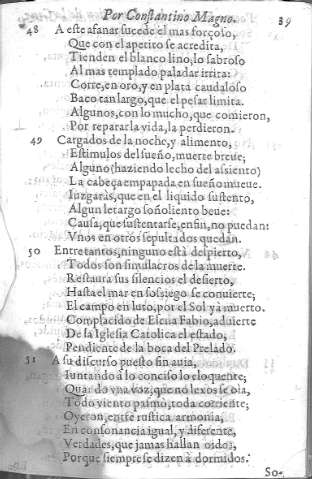 Por Constantino Magno. 39
48 A este afanar sucede el mas forçoso,
Que con el apetito se acredita,
Tienden el blanco lino, lo sabroso
Al mas templado paladar irrita:
Corre, en oro, y en plata caudaloso
Baco tan largo, que el pesar limita.
Algunos, con lo mucho, que comieron,
Por repararla vida, la perdieron.
49 Cargados de la noche, y alimento,
Estimulos del sueño, muerte breue;
Alguno (haziendo lecho del assiento)
La cabeça empapada en sueño mueue.
Iuzgaràs, que en el liquido sustento,
Algun letargo soñoliento beue:
Causa, que sustentarse, enfin, no puedan:
Vnos en otros sepultados quedan.
50 Entre tantos, ninguno està despierto,
Todos son simulacros de la muerte.
Restaura sus silencios el desierto,
Hasta el mar en sossiego se conuierte;
El campo en luto, por el Sol yà muerto.
Complacido de Escua Fabio, aduierte
De la Iglesia Catolica el estado,
Pendiente de la boca del Prelado.
51 A su discurso puesto fin auia,
Iuntando à lo conciso lo eloquente;
Quando vna voz, que no lexos se oìa,
Todo viento pasmò, toda corriente;
Oyeron, entre rustica armonia,
En consonancia igual, y diferente,
Verdades, que jamas hallan oidos,
Porque siempre se dizen à dormidos.
So-